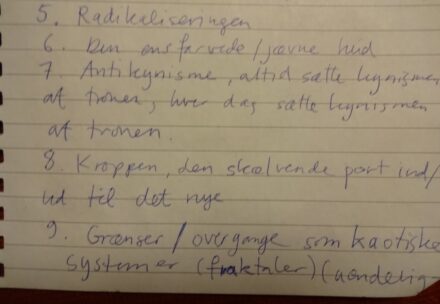 5. Radikaliseringen
6. Den ensfarvede/jævne hud
7. Antikynisme, altid sætte kynismen
af tronen, hver dag sætte kynismen
af tronen.
8. Kroppen, den skælvende port ind/
ud til det nye
9. Grænser/overgange som kaotiske
systemer (fraktaler) (uendelig-